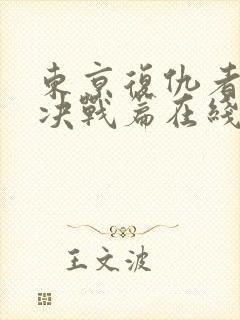 東京復仇者
决戰篇在綫
王文波